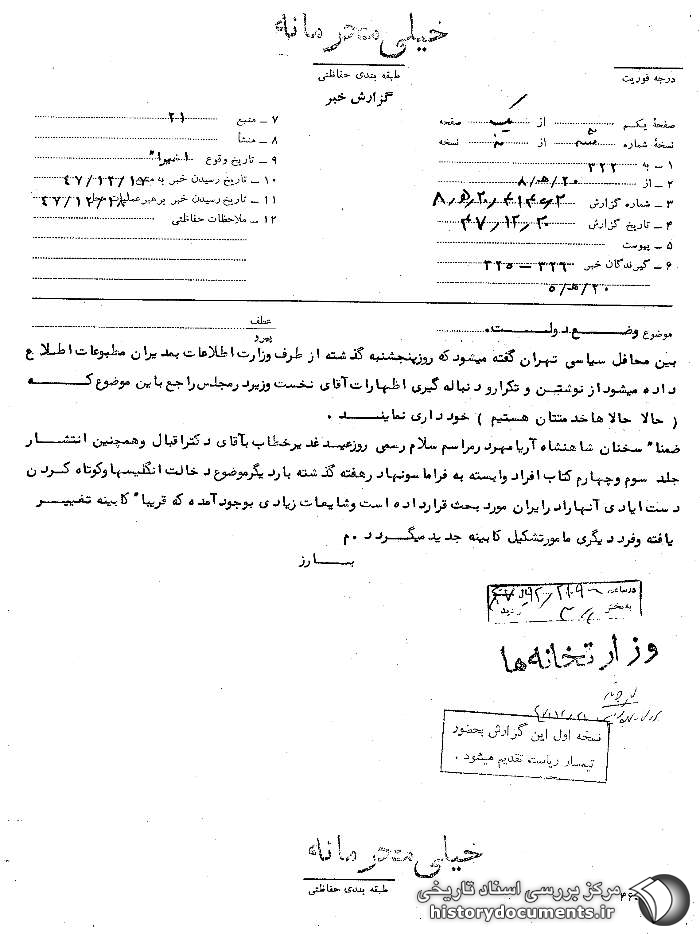 خیلی محرمانه
طبقه بندی حفاظتی
درجه فوریت
گزارش خبر
صفحهٔ یکم از یک صفحه
نسخهٔ شماره از نسخه
۱ ـ به ۳۲۲
۲ ـ از ۲۰/ه/۸
۳ ـ شماره گزارش
۴ ـ تاریخ گزارش ۴۷/۱۲/۲۰
۵ ـ پیوست
۶ ـ گیرندگان خبر ۳۲۶ – ۳۲۵
۲۰/ه/۵
۷ ـ منبع ۲۱
۸ ـ منشأ
۹ ـ تاریخ وقوع اخیرا"
۱۰ ـ تاریخ رسیدن خبر به منبع ۴۷/۱۲/۱۷
۱۱ ـ تاریخ رسیدن خبر برهبر عملیات ۴۷/۱۲/۱۸
۱۲ ـ ملاحظات حفاظتی
موضوع وضع دولت.
عطف
پیرو
بین محافل سیاسی تهران گفته میشود که روز پنجشنبه گذشته از طرف وزارت اطلاعات بمدیران مطبوعات اطلاع
داده میشود از نوشتین و تکرار و دنباله گیری اظهارات آقای نخست وزیر در مجلس راجع باین موضوع که
( حالا حالاها خدمتتان هستیم ) خودداری نمایند .
ضمنا" سخنان شاهنشاه آریامهر در مراسم سلام رسمی روز عید غدیر خطاب بآقای دکتر اقبال وهمچنین انتشار
جلد سوم وچهارم کتاب افراد وابسته به فراماسونها در هفته گذشته بار دیگر موضوع دخالت انگلیسها وکوتاه کردن
دست ایادی آنها را در ایران مورد بحث قرار داده است وشایعات زیادی بوجود آمده که قریبا" کابینه تغییر
یافته وفرد دیگری مامور تشکیل کابینه جدید میگردد . م
بارز
در ساعت
به بخش رسید
وزارتخانه ها
نسخه اول این گزارش بحضور
تیمسار ریاست تقدیم میشود .
خیلی محرمانه
طبقه بندی حفاظتی
مرکز بررسی اسناد تاریخی
historydocuments.ir